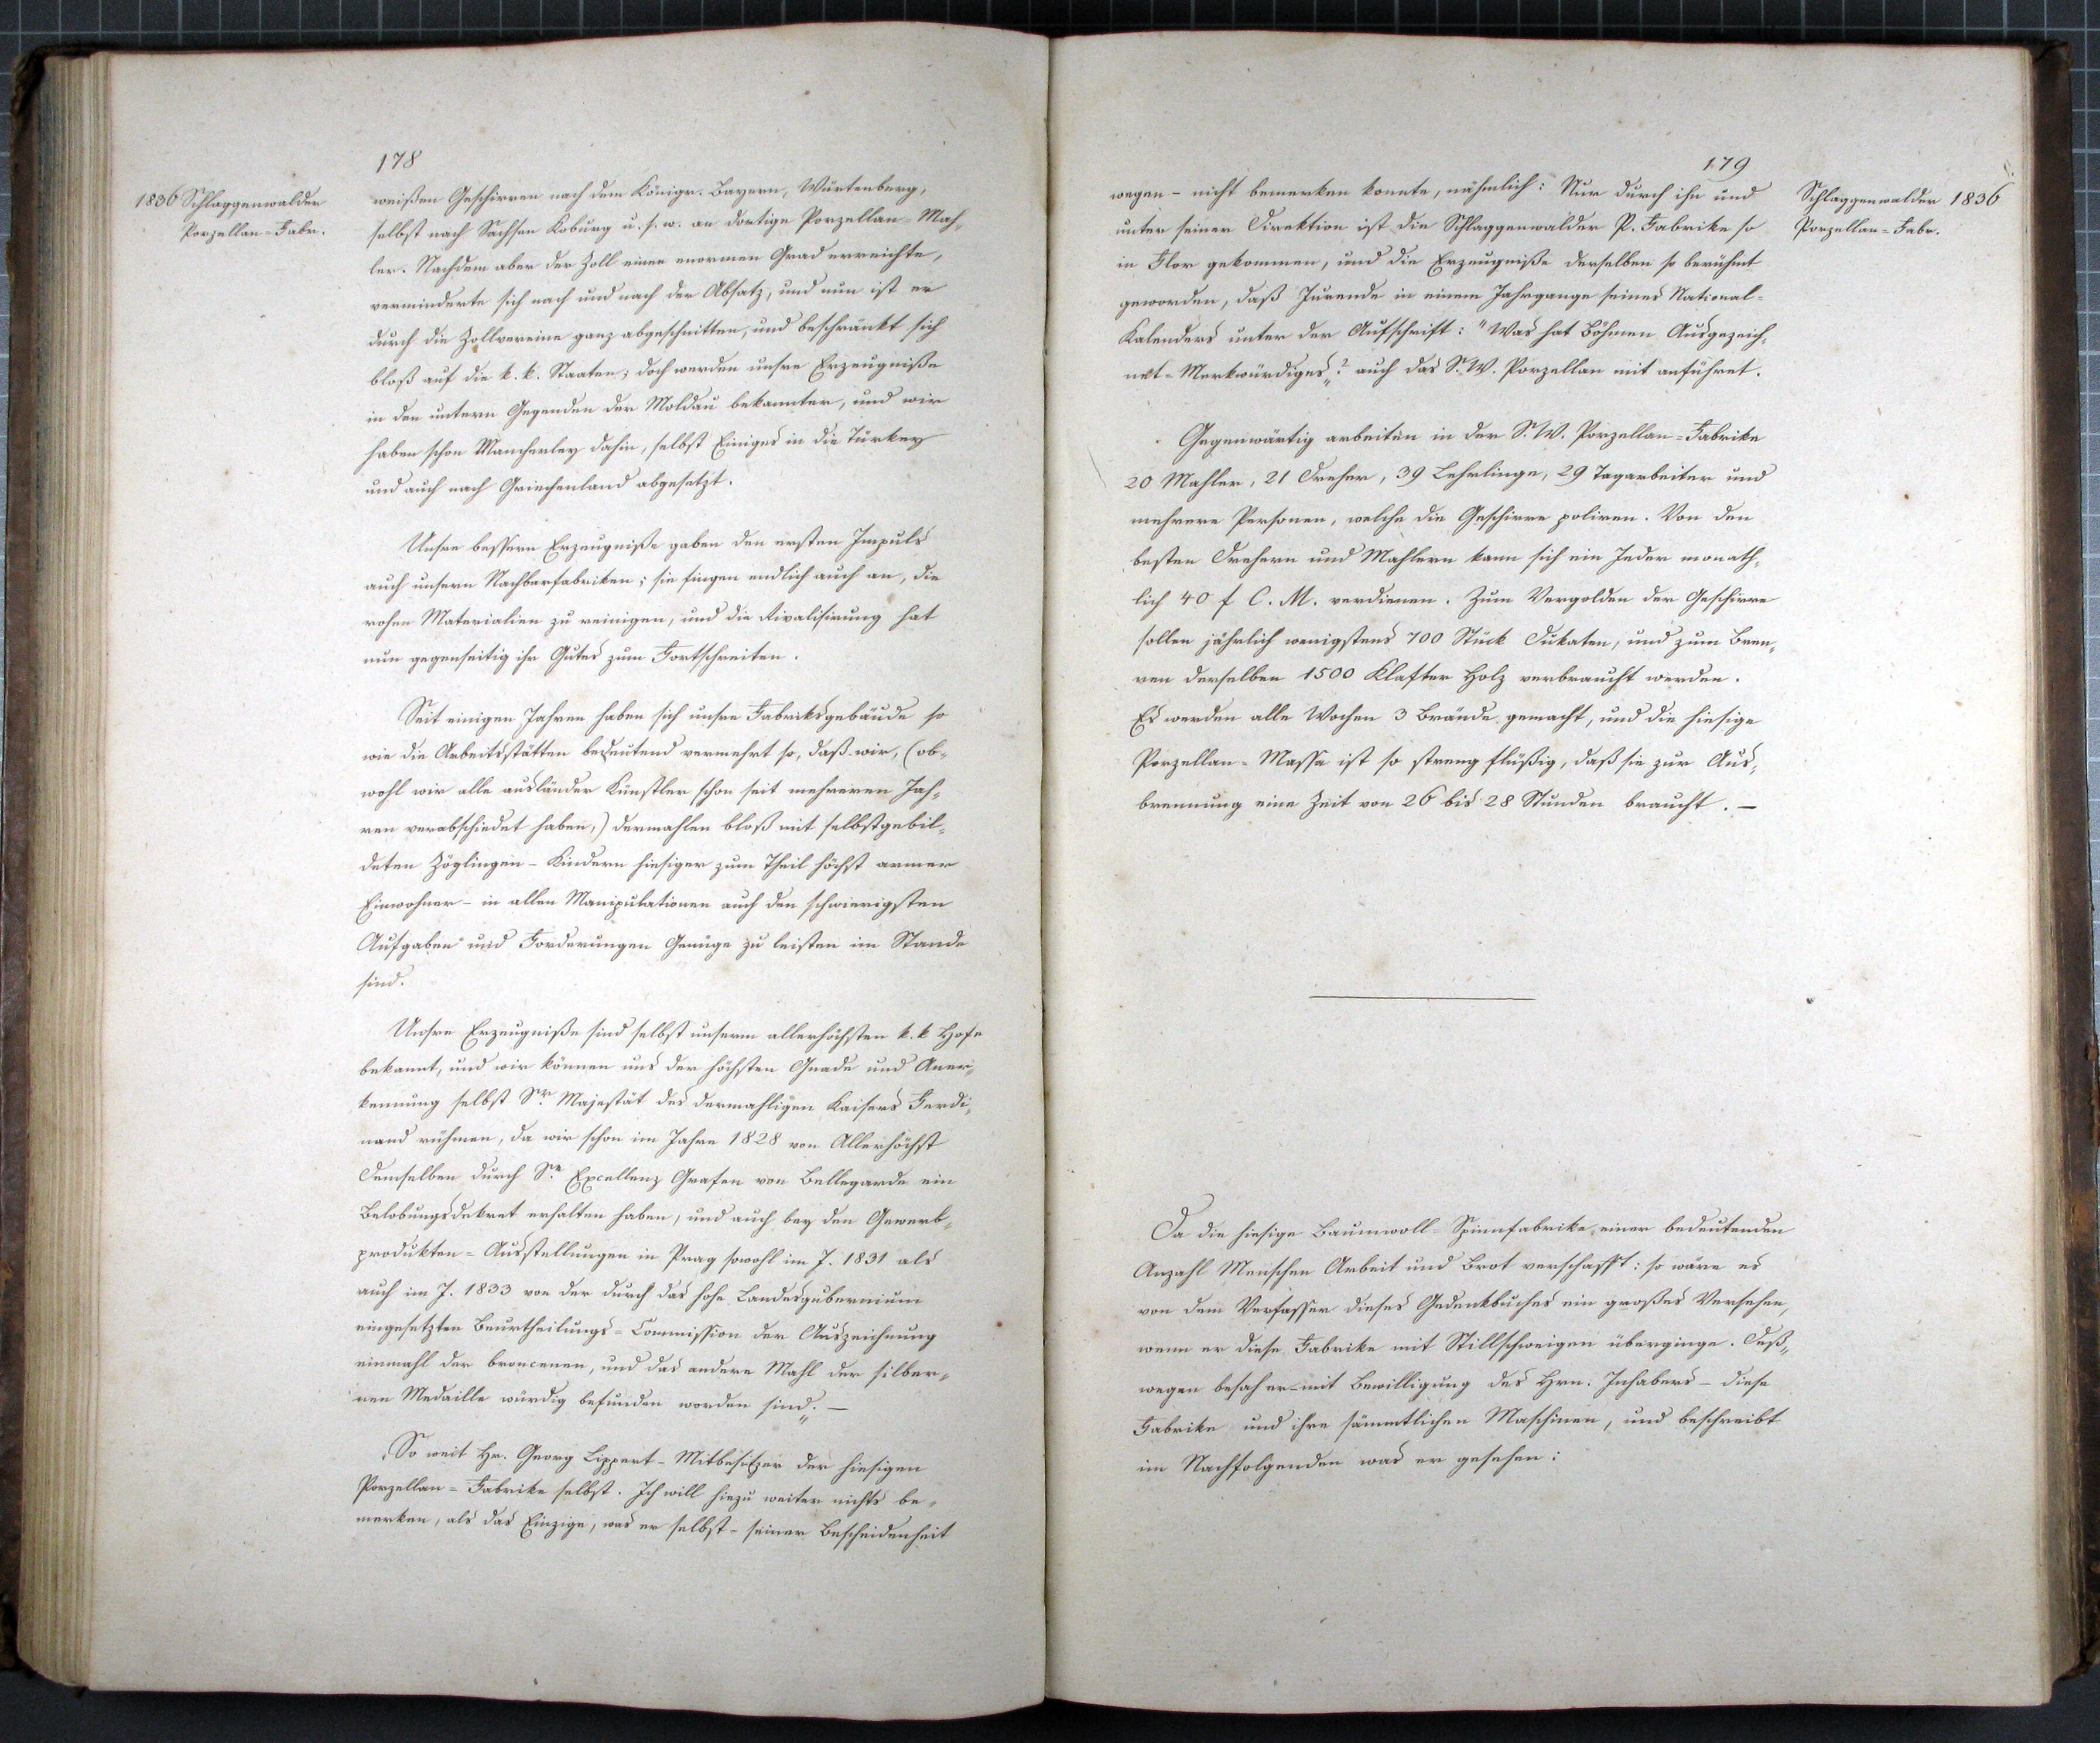 178
1836 Schlaggenwalder
Porzellan-Fabr.
weißen Geschirren nach dem Königr. Bayern, Würtenberg,
selbst nach Sachsen Koburg u. s. w. an dortige Porzellan-Mah„
ler. Nachdem aber der Zoll einen enormen Grad erreichte,
verminderte sich nach und nach der Absatz, und nun ist er
durch die Zollvereine ganz abgeschnitten, und beschränkt sich
bloß auf die k. k. Staaten; doch werden unsre Erzeugniße
in den untern Gegenden der Moldau bekannter, und wir
haben schon Mancherley dahin, selbst Einiges in die Türkey
und auch nach Griechenland abgesetzt.
Unsre bessern Erzeugniße gaben den ersten Impuls
auch unsern Nachbarfabriken; sie fingen endlich auch an, die
rohen Materialien zu reinigen, und die Rivalisirung hat
nun gegenseitig ihr Gutes zum Fortschreiten.
Seit einigen Jahren haben sich unsre Fabriksgebäude so
wie die Arbeitsstätten bedeutend vermehrt so, daß wir, (ob„
wohl wir alle ausländer Künstler schon seit mehreren Jah„
ren verabschiedet haben,) dermahlen bloß mit selbstgebil„
deten Zöglingen – Kindern hiesiger zum Theil höchst armer
Einwohner – in allen Manipulationen auch den schwierigsten
Aufgaben und Forderungen Genüge zu leisten im Stande
sind.
Unsre Erzeugniße sind selbst unserm allerhöchsten k. k Hofe
bekannt, und wir können uns der höchsten Gnade und Aner„
kennung selbst Sr. Majestät des dermahligen Kaisers Ferdi„
nand rühmen, da wir schon im Jahre 1828 von Allerhöchst
Demselben durch Sr. Excellenz Grafen von Bellegarde ein
Belobungsdekret erhalten haben, und auch bey den Gewerb„
produkten-Ausstellungen in Prag sowohl im J. 1831 als
auch im J. 1833 von der durch das hohe Landesgubernium
eingesetzten Beurtheilungs-Commission der Auszeichnung
einmahl der broncenen, und das andere Mahl der silber„
nen Medaille würdig befunden worden sind.„ –
So weit Hr. Georg Lippert – Mitbesitzer der hiesigen
Porzellan-Fabrike selbst. Ich will hiezu weiter nichts be„
merken, als das Einzige, was er selbst – seiner Bescheidenheit
179
Schlaggenwalder 1836
Porzellan-Fabr.
wegen – nicht bemerken konnte, nähmlich: Nur durch ihn und
unter seiner Direktion ist die Schlaggenwalder P. Fabrike so
in Flor gekommen, und die Erzeugniße derselben so berühmt
geworden, daß Jurende in einem Jahrgange seines National-
Kalenders unter der Aufschrift: "Was hat Böhmen Ausgezeich„
net-Merkwürdiges„? auch das S. W. Porzellan mit anführet.
Gegenwärtig arbeiten in der S. W. Porzellan-Fabrike
20 Mahler, 21 Dreher, 39 Lehrlinge, 29 Tagarbeiter und
mehrere Personen, welche die Geschirre poliren. Von den
besten Drehern und Mahlern kann sich ein Jeder monath„
lich 40 f C. M. verdienen. Zum Vergolden der Geschirre
sollen jährlich wenigstens 700 Stück Dukaten, und zum Bren„
nen derselben 1500 Klafter Holz verbraucht werden.
Es werden alle Wochen 3 Brände gemacht, und die hiesige
Porzellan-Massa ist so streng flüßig, daß sie zur Aus„
brennung eine Zeit von 26 bis 28 Stunden braucht. –
Da die hiesige Baumwoll-Spinnfabrike einer bedeutenden
Anzahl Menschen Arbeit und Brot verschafft: so wäre es
von dem Verfasser dieses Gedenkbuches ein großes Versehen,
wenn er diese Fabrike mit Stillschweigen überginge. Deß„
wegen besah er – mit Bewilligung des Hrn. Inhabers – diese
Fabrike und ihre sämmtlichen Maschinen, und beschreibt
im Nachfolgenden was er gesehen: